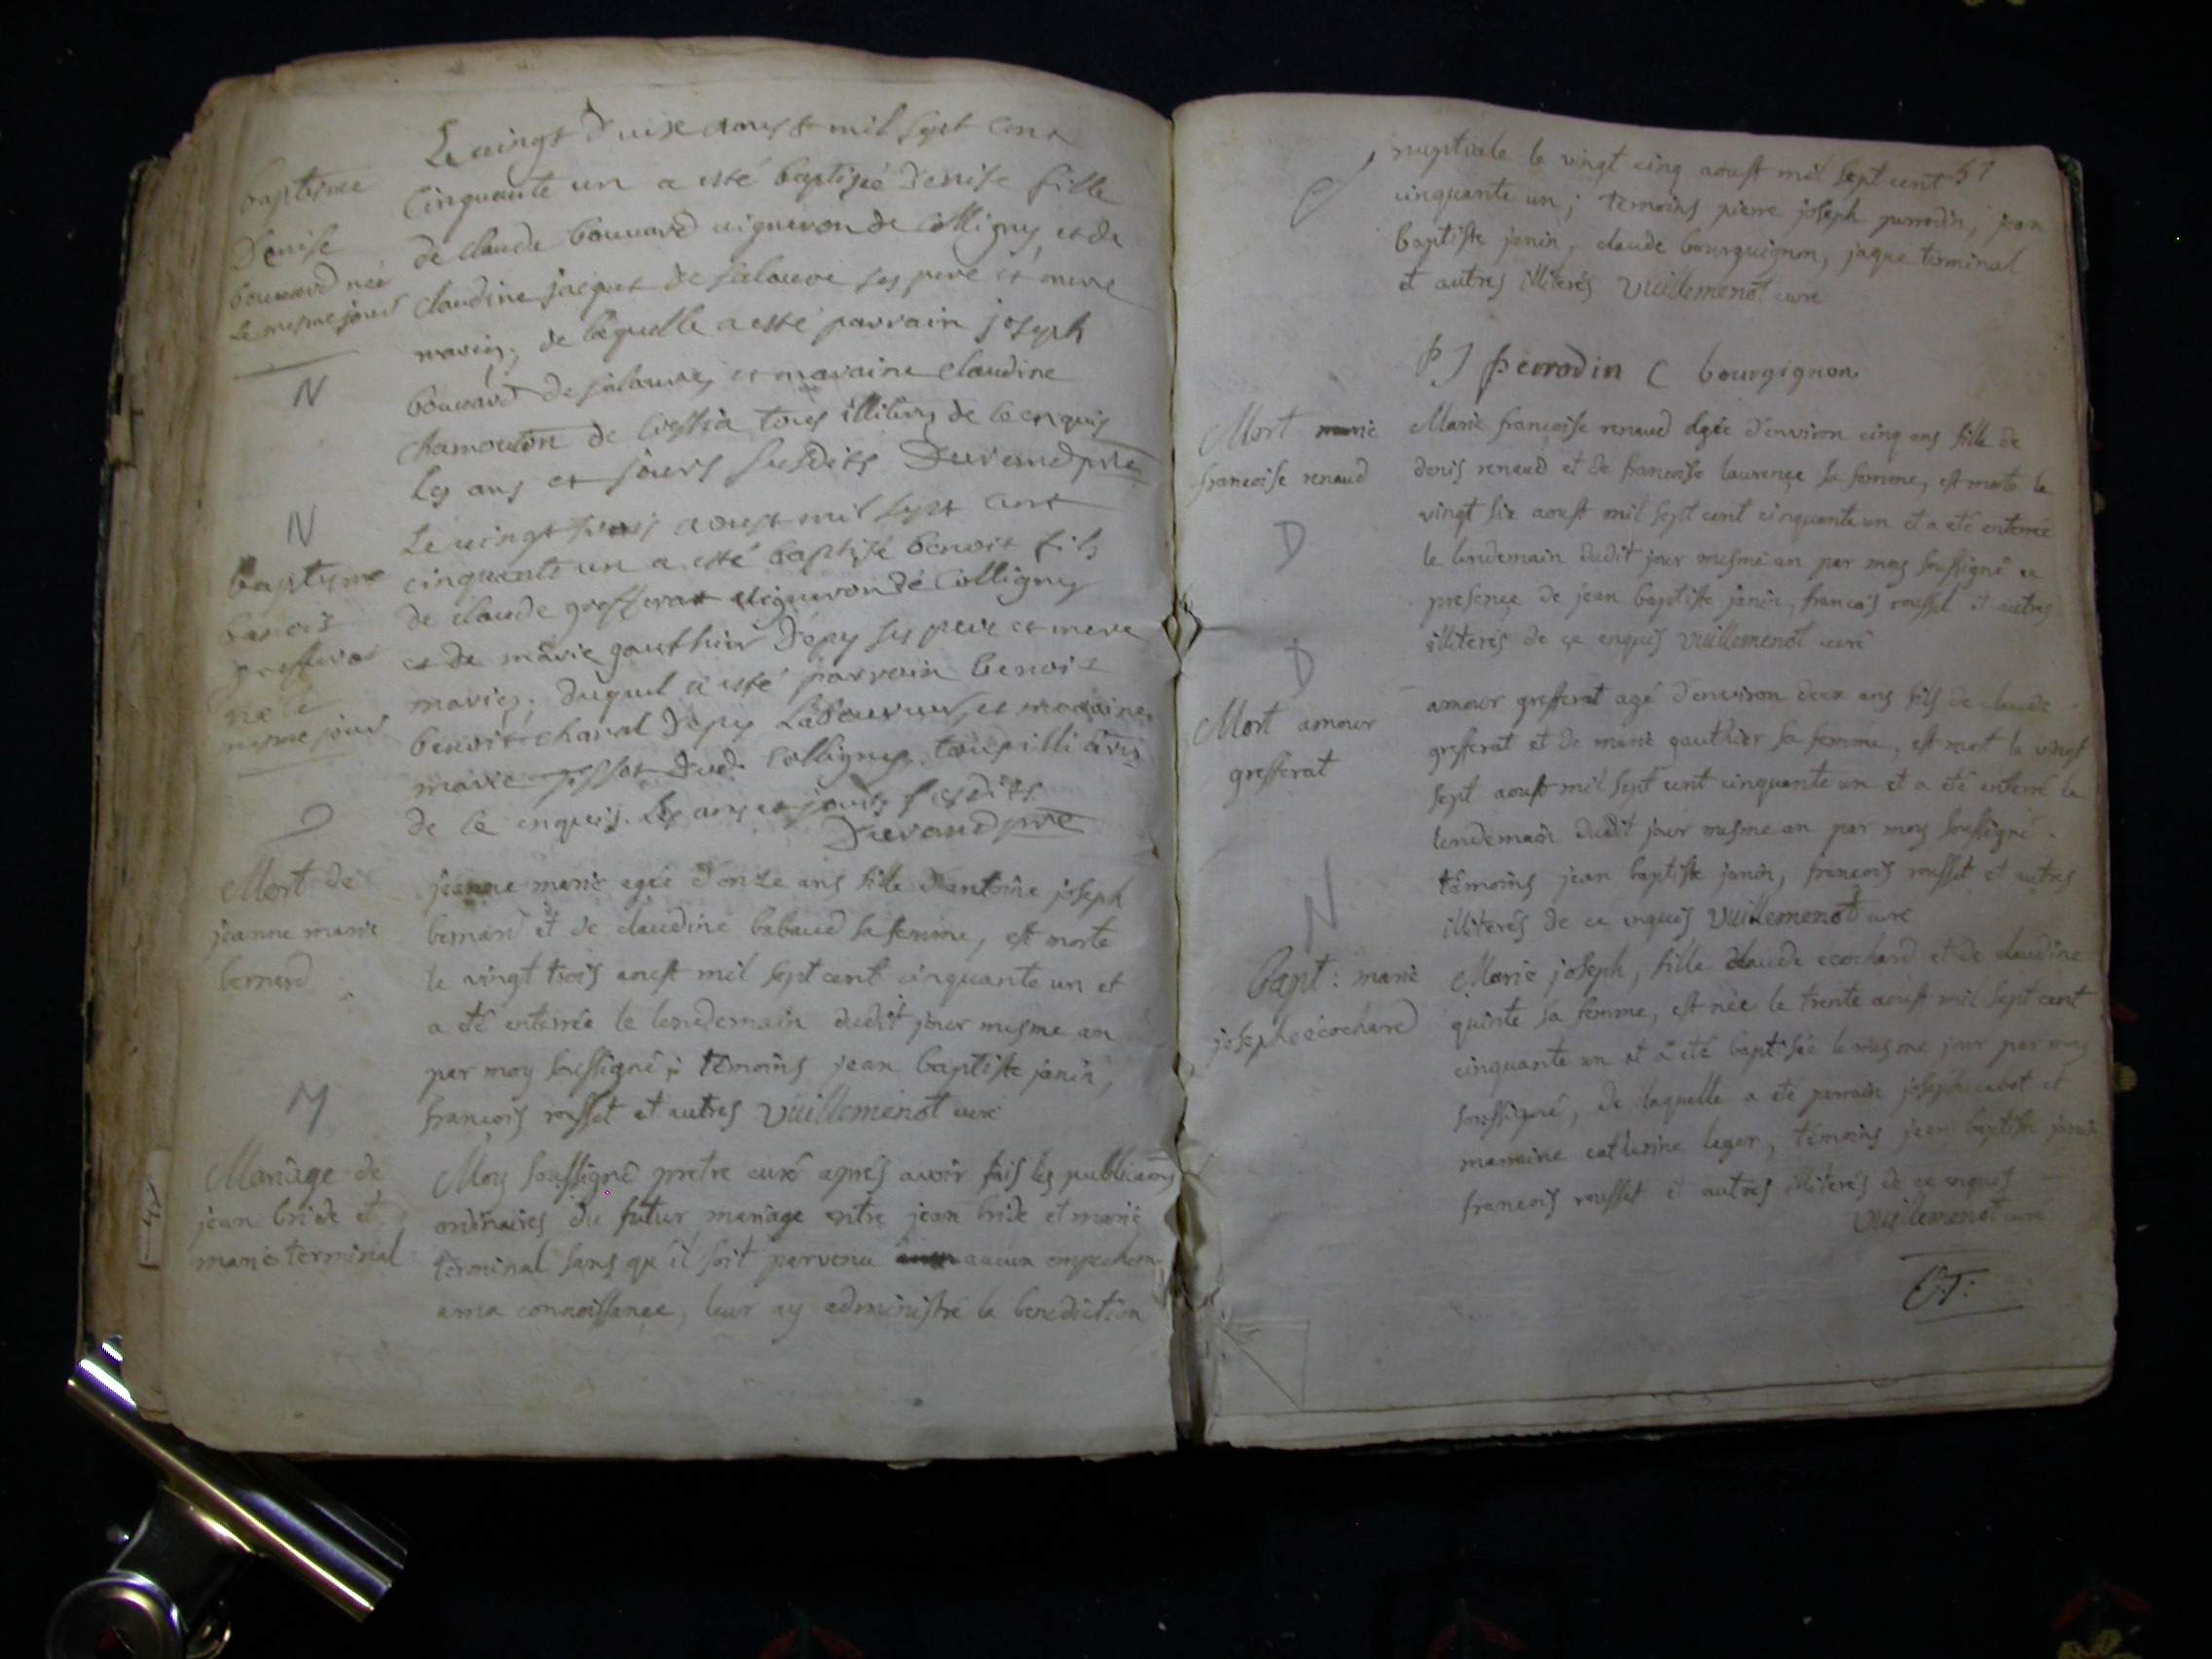 baptisme
Denise
bouvard née
le mesme jour
N
Le vingt d'uixe aoust mil sept cent
cinquante un a esté baptisée denise fille
de claude bouvard vigneron de colligny et de
claudine jacquet de salavre ses pere et mere
mariez, de laquelle a esté parrain joseph
bouvard de salavre, et maraine claudine
chamouton de cessia tous illiterez de ce enquis
les ans et jours susdits Durand pre
N
baptisme
benoit
grefferat
né le
mesme jour
Le vingt trois aoust mil sept cent
cinquante un a esté baptisé benoit fils
de claude grefferat vigneron de colligny
et de marie gauthier d'épy ses pere et mere
mariez, duquel a esté parrain benoit
benoit chanal d'épy laboureur, et maraine
marie dud. colligny, tous illiterez
de ce enqueis. les ans et jours susdits
Durand pre
D
Mort de
jeanne marie
bernard
jeanne marie agée d'onze ans fille d'antoine joseph
bernard et de claudine babaud sa femme, est morte
le vingt trois aoust mil sept cent cinquante un et
a eté enterrée le lendemain dudit jour mesme an
par moy soussigné; témoins jean baptiste janin,
françois rousset et autres Vuillemenot curé
M
Mariage de
jean bride et
marie terminal
Moy soussigné pretre curé aprés avoir fais les publications
ordinaires du futur mariage entre jean bride et marie
terminal sans qu'il soit parvenu aucun empechem
a ma connoissance, leur ay administré la benediction
51
nuptiale le vingt cinq aoust mil sept cent
cinquante un; temoins pierre joseph perrodin, jean
baptiste janin, claude bourguignon, jaque terminal
et autres illiterés Vuillemenot curé
P J perrodin C bourgignon
Mort marie
francoise renaud
D
Marie françoise renaud agée d'environ cinq ans fille de
denis renaud et de francoise laurençe sa femme, est morte le
vingt six aoust mil sept cent cinquante un et a eté enterrée
le lendemain dudit jour mesme an par moy soussigné en
presençe de jean baptiste janin, francois rousset et autres
illiterés de çe enquis Vuillemenot curé
D
Mort amour
grefferat
amour grefferat agé d'environ deux ans fils de claude
grefferat et de marie gauthier sa femme, est mort le vingt
sept aoust mil sept cent cinquante un et a eté enterré le
lendemain dudit jour mesme an par moy soussigné.
témoins jean baptiste janin, francois rousset et autres
illiterés de ce enquis Vuillemenot curé
N
Bapt: marie
joseph ecochard
Marie joseph, fille claude ecochard et de claudine
quinte sa femme, est née le trente aoust mil sept cent
cinquante un et a eté baptisée le mesme jour par moy
soussigné, de laquelle a eté parrain joseph cabot et
marraine catherine leger, témoins jean baptiste janin
francois rousset et autres illiterés de ce enquis
Vuillemenot curé